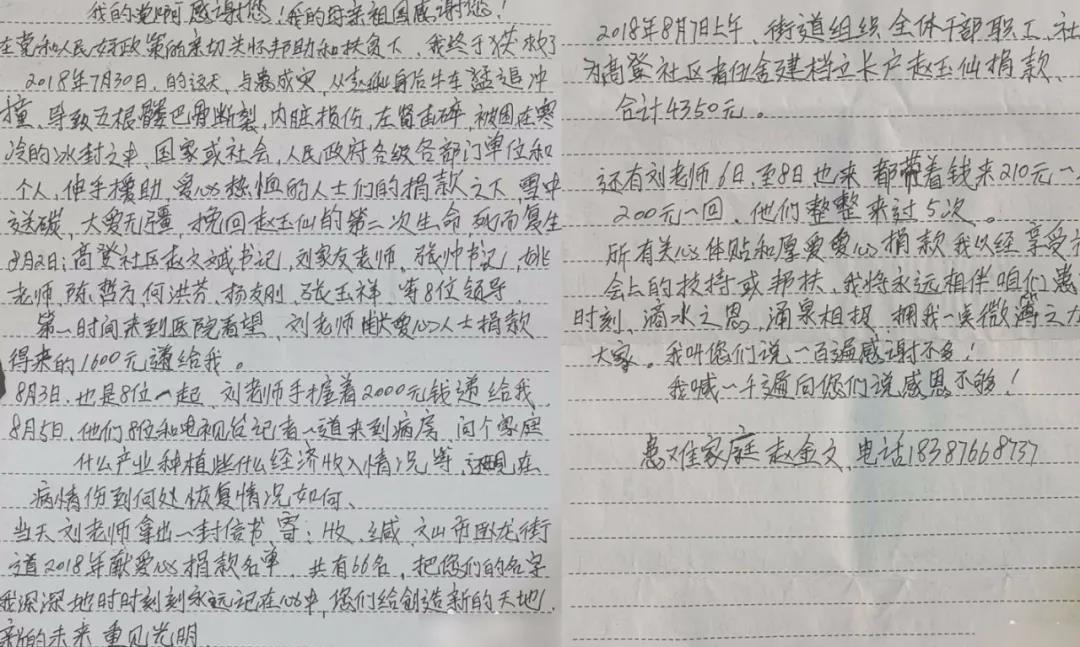 我的党啊感谢您！我的母亲祖国感谢您！
在党和人民好政策的亲切关怀帮助和扶贫下，我终于获救了
2018年7月30日，的这天，与患成灾，从赵仙身后牛车猛追冲
撞、导致五根髅巴骨断裂，内脏损伤，左肾击碎，被困在寒
冷的冰封之中，国家或社会，人民政府各级各部门单位和
个人，伸手援助，爱心热恤的人士们的捐款之下，雪中
送碳，大爱无疆，挽回赵玉仙的第二次生命 死而复生
8月2日：高登社区赵文诚书记，刘家友老师，张帅书记，姚
老师，陈哲方 何洪芳、杨友刚，张玉祥，等8位领导，
第一时间来到医院看望，刘老师献大爱心人士捐款
得来的1600元递给我。
8月3日，也是8位一起，刘老师手握着2000元钱递给我
8月5日，他们8位和电视台记者一道来到病房，问个家庭
什么产业种植些什么经济收入情况等，还现在
病情伤到何处恢复情况如何、
当天刘老师拿出一封信书，写：收，缄，文山市卧龙街
道2018年献爱心捐款名单，共有66名，把您们的名字
我深深地时时刻刻永远记在心中，您们给创造新的天地，
新的未来 重见光明
2018年8月7日上午，街道组织全体干部职工，社
为高登社区 建档立卡户赵玉仙捐款、
合计4350元。
还有刘老师6日，至8日也来 都带着钱来210元一
200元一回，他们整整来过5次。
所有关心体贴和厚爱爱心捐款我以经享受
会上的扶持或帮扶，我将永远相伴咱们患
时刻，滴水之恩，涌泉相报，拥我一点微薄之力
大家。我叫您们说一百遍感谢不多！
我喊一千遍向您们说感恩不够！
患难家庭 赵金文，电话18387668737